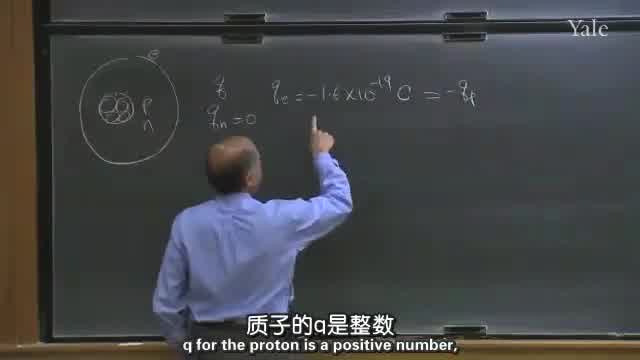 Yale
e
p
n
q
q_n = 0
q_e = -1.6 × 10^-19 C = -q_p
质子的q是整数
q for the proton is a positive number,